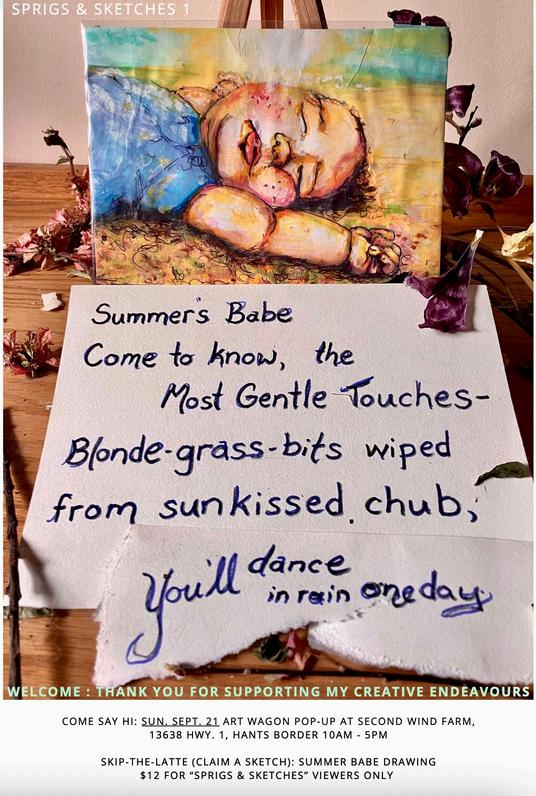 SPRIGS & SKETCHES 1
Summer's Babe
Come to know, the
Most Gentle Touches-
Blonde-grass-bits wiped
from sunkissed chub,
You'll dance
in rain one day.
WELCOME : THANK YOU FOR SUPPORTING MY CREATIVE ENDEAVOURS
COME SAY HI: SUN. SEPT. 21 ART WAGON POP-UP AT SECOND WIND FARM,
13638 HWY. 1, HANTS BORDER 10AM - 5PM
SKIP-THE-LATTE (CLAIM A SKETCH): SUMMER BABE DRAWING
$12 FOR “SPRIGS & SKETCHES” VIEWERS ONLY